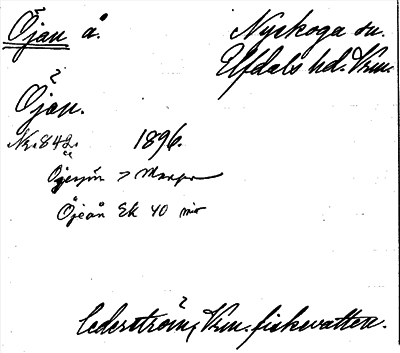 Öjan å. Nyskoga sn.
Elfdals hd. Vrm.
Öjan.
Nr. 842. 1896.
Öjesjön >
Öjeån Ek 40 nv
Cederström, Vrm. fiskevatten.